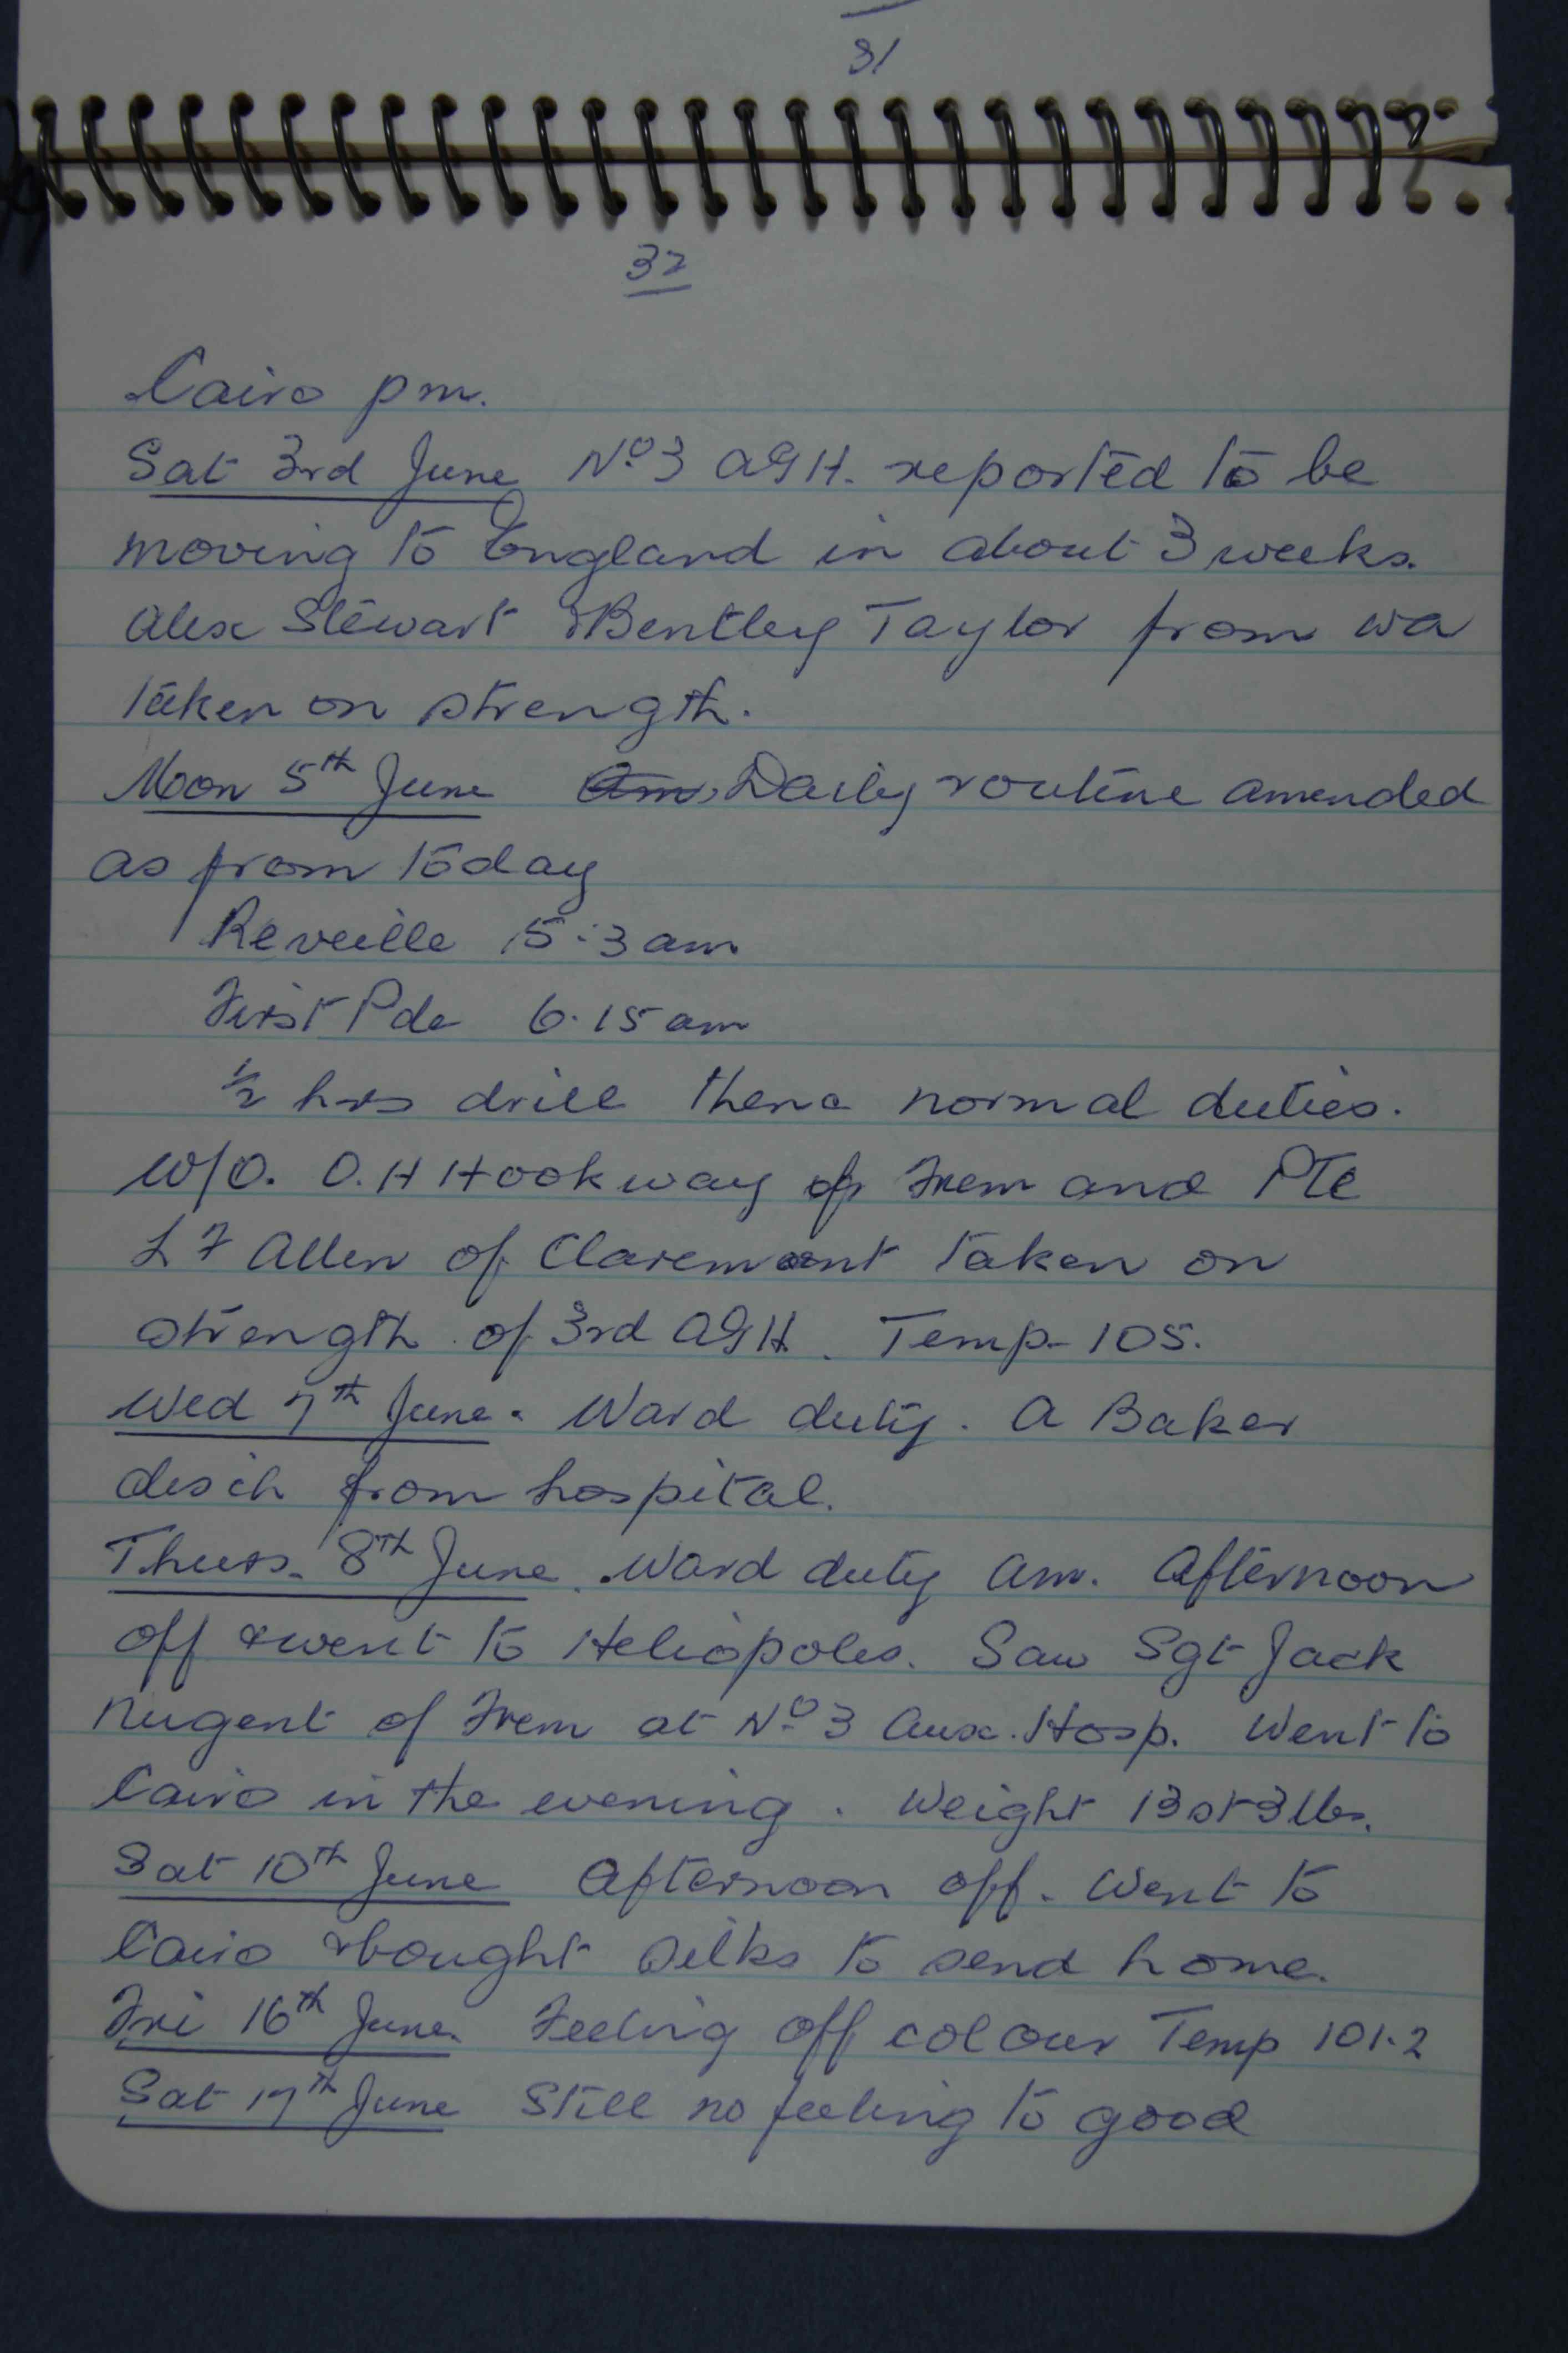 31
32
Cairo pm.
Sat 3rd June No 3 AGH. reported to be
moving to England in about 3 weeks.
Alex Stewart & Bentley Taylor from WA
taken on strength.
Mon 5th June Am, Daily routine amended
as from today
Reveille 5.3 am
First Pde 6.15 am
1/2 hrs drill then normal duties.
W/O. O.H Hookway of Frem and Pte
L F Allen of Claremont taken on
strength of 3rd AGH. Temp - 105.
Wed 7th June. Ward duty. A Baker
disch from hospital.
Thurs. 8th June. Ward duty am. Afternoon
off & went to Heliopoles. Saw Sgt Jack
Nugent of Frem at No 3 Aux. Hosp. Went to
Cairo in the evening. Weight 13 st 3 lbs.
Sat 10th June Afternoon off. Went to
Cairo & bought silks to send home.
Fri 16th June. Feeling off colour Temp 101.2
Sat 17th June Still no feeling to good